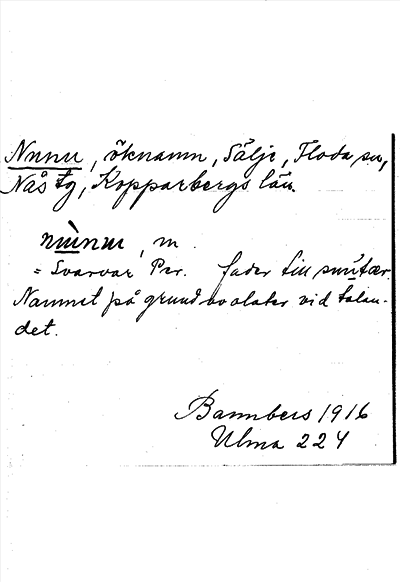 Nunu, öknamn, Sälje, Floda sn,
Nås tg, Kopparbergs län.
nùnu, m.
= Svarvar Per. fader till
Namnet på grund av olater vid talan-
det.
Bannbers 1916
Ulma 224